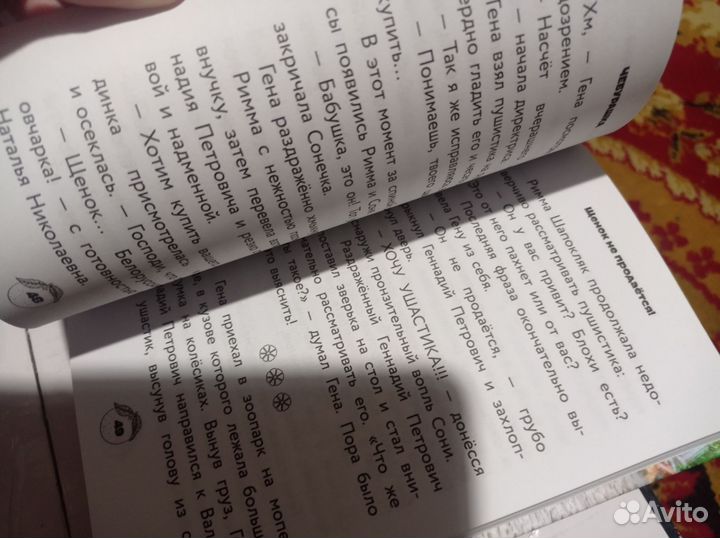 ЧЕБУРАШКА
Хм, — Гена
дозрением.
— Насчёт вчерашнего
— начала директриса
Гена взял пушистика
сердно гладить его и
— Так я же исправилс
— Понимаешь, твоего
купить...
В этот момент за
сы появились Римма и
— Бабушка, это он!
закричала Сонечка.
Гена раздражённо
Римма с нежностью
внучку, затем перевела
надия Петровича и
вой и надменной.
— Хотим купить
присмотрелась
динка
и осеклась. — Господи,
— Щенок... Белорус
овчарка! — с готовность
Наталья Николаевна.
48
ЩЕНОК НЕ ПРОДАЁТСЯ!
Римма Шапокляк продолжала недо-
верчиво рассматривать пушистика:
— Он у вас привит? Блохи есть?
Это от него пахнет или от вас?
Последняя фраза окончательно вы-
вела Гену из себя.
— Он не продаётся, — грубо
рыкнул Геннадий Петрович и захлоп-
нул дверь.
— ХОЧУ УШАСТИКА!!! — донёсся
снаружи пронзительный вопль Сони.
Раздражённый Геннадий Петрович
поставил зверька на стол и стал вни-
мательно рассматривать его. «Что же
ты такое?» — думал Гена. Пора было
это выяснить!
Гена приехал в зоопарк на мопе
в кузове которого лежала больш
сумка на колёсиках. Вынув груз, Г
адий Петрович направился к Вал
ушастик, высунув голову из с
49
Avito